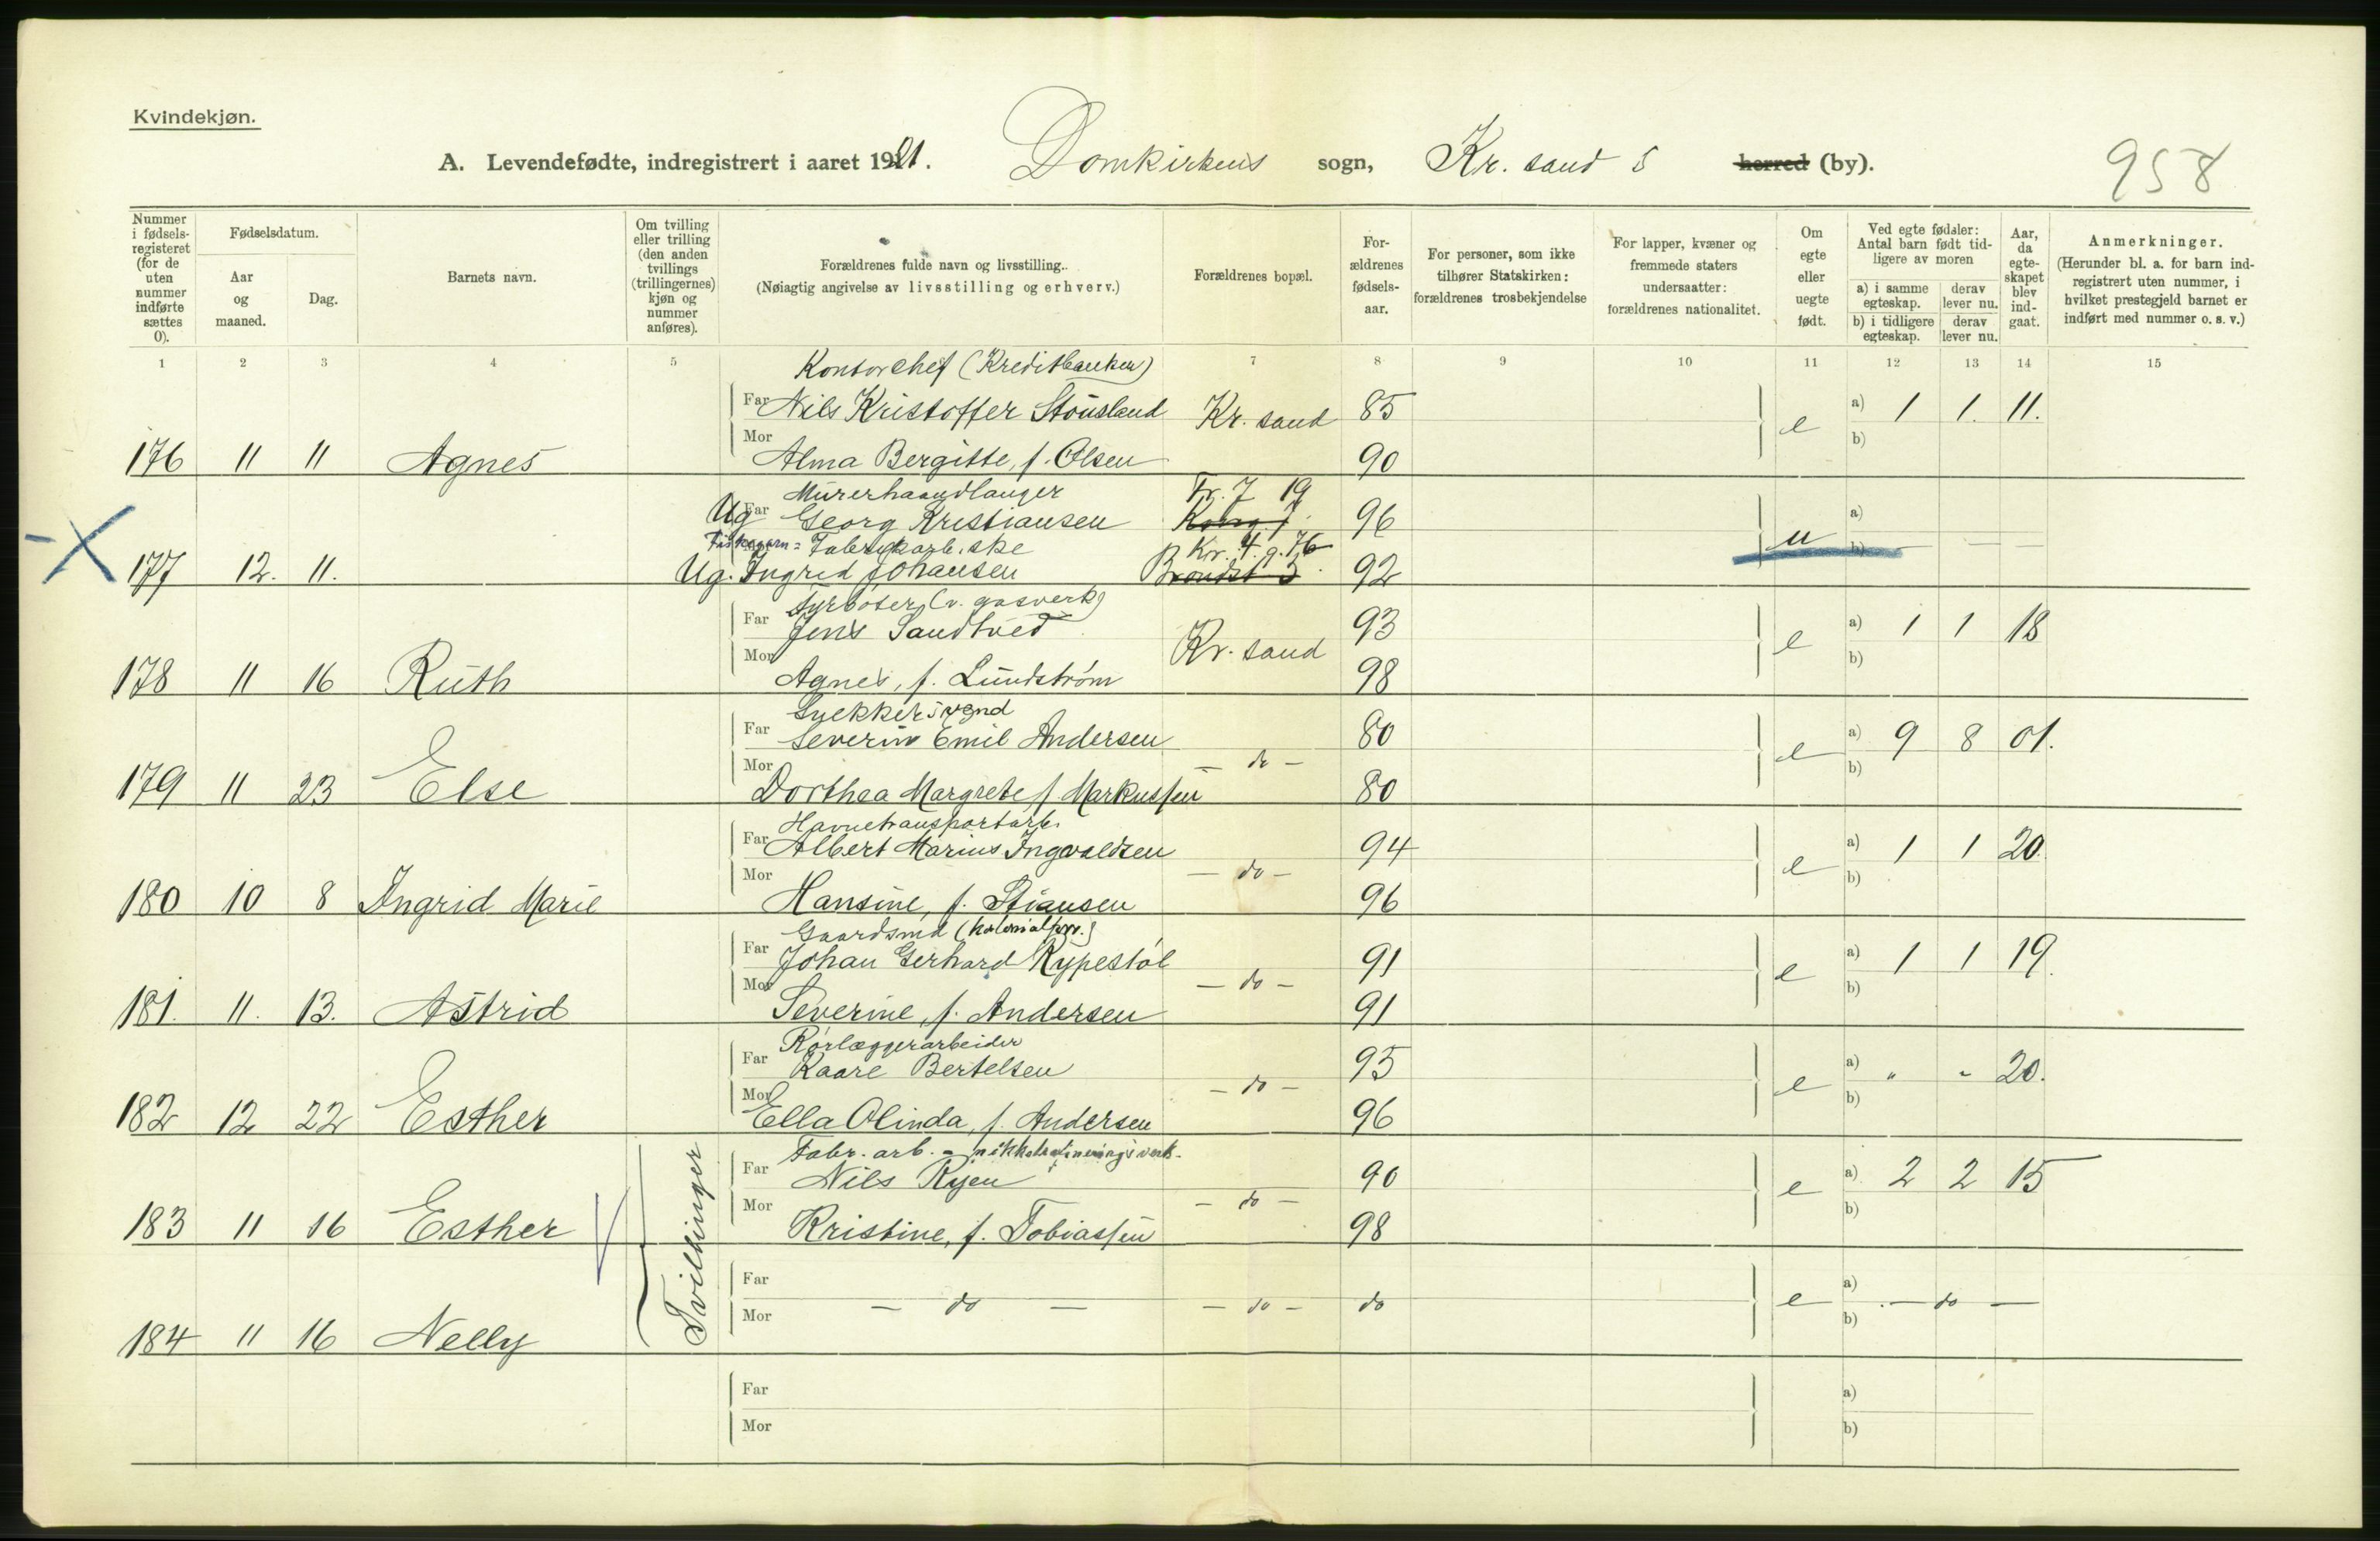 Kvindekjøn.
A. Levendefødte, indregistrert i aaret 1921. Domkirkens sogn, Kr. sand S herred (by). 958
Nummer i fødsels-registeret (for de uten nummer indførte sættes 0).
Fødselsdatum.
Aar og maaned.
Dag.
Barnets navn.
Om tvilling eller trilling (den anden tvillings (trillingernes) kjøn og nummer anføres).
Forældrenes fulde navn og livsstilling.
(Nøiagtig angivelse av livsstilling og erhverv.)
Forældrenes bopæl.
For-ældrenes fødsels-aar.
For personer, som ikke tilhører Statskirken: forældrenes trosbekjendelse
For lapper, kvæner og fremmede staters undersaatter: forældrenes nationalitet.
Om egte eller uegte født.
Ved egte fødsler: Antal barn født tid-ligere av moren
a) i samme egteskap.
derav lever nu.
b) i tidligere egteskap.
derav lever nu.
Aar, da egte-skapet blev ind-gaat.
Anmerkninger.
(Herunder bl. a. for barn ind-registrert uten nummer, i hvilket prestegjeld barnet er indført med nummer o. s. v.)
1 2 3 4 5 7 8 9 10 11 12 13 14 15
Kontorchef (Kreditbanken)
Far Nils Kristoffer Stousland Kr. sand 85 e a) 1 1. 11.
Mor b)
176 11 11 Agnes Alma Bergitte, f. Olsen 90
Murerhaandlanger Fr. 7 19
Ug Far Georg Kristiansen 96 u a)
Fabrikarb.ske Kr. 4. g. 76 b)
177 12. 11. Ug. Ingrid Johansen 92
Fyrbøter (v. gasverk)
Far Jens Sandtved Kr. sand 93 e a) 1 1 18
Mor b)
178 11 16 Ruth Agnes, f. Lundstrøm 98
Snekkersvend
Far Severin Emil Andersen - do - 80 e a) 9 8 01.
Mor b)
179 11 23 Else Dorthea Margrete f. Markussen 80
Havnetransportarb.
Far Albert Marius Ingvaldsen - do - 94 e a) 1 1 20.
Mor b)
180 10 8 Ingrid Marie Hansine, f. Stiansen 96
Gaardsmd (kolonialforr.)
Far Johan Gerhard Rypestøl - do - 91 e a) 1 1 19.
Mor b)
181. 11. 13. Astrid Severine, f. Andersen 91
Rørlæggerarbeider
Far Kaare Bertelsen - do - 95 e a) " - 20.
Mor b)
182 12 22 Esther Ella Olinda, f. Andersen 96
Fabr. arb. - nikkelrafineringsverk.
Far Nils Ryen - do - 90 e a) 2 2 15
Mor b)
183 11 16 Esther Tvillinger Kristine, f. Tobiassen 98
Far a)
Mor - do - - do - do e b) - do -
184 11 16 Nelly
Far a)
Mor b)